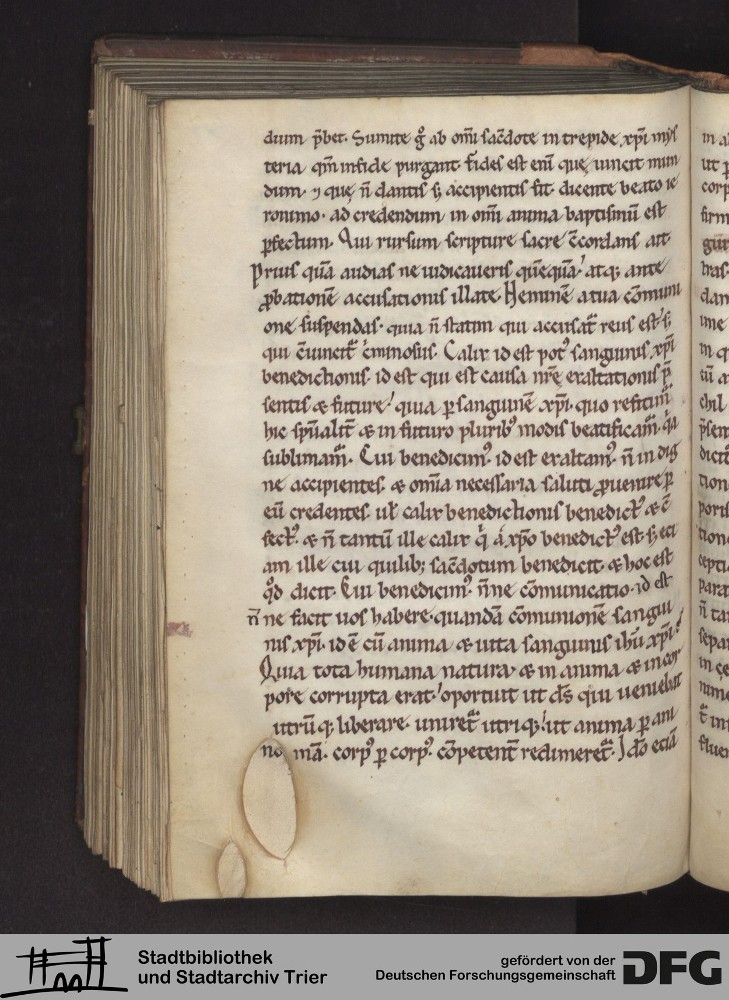 dium p̄bet. Sumite gͦ ab om̄i sac̄dote intrepide xp̄i mys
teria qm̄ in fide purgant. fides est eni̅ que̜ uincit mun
dum. ⁊ que̜ n̄ dantis sꝫ accipientis sit. dicente beato ie
ronimo. ad credendum in om̄i anima baptismu̅ est
ꝑfectum. Qui rursum scripture sacre c̄cordans ait
Prius qua̅ audias ne iudicaueris que̅qua̅. atqꝫ ante
ꝓbatione̅ accusationis illate. Nemine̅ a tua co̅muni
one suspendas. quia n̄ statim qui accusat᷑ reus est. sꝫ
qui c̄uincit᷑ c̄minosus. Calix id est potꝰ sanguinis xp̄i
benedictionis. id est qui est causa nr̄e̜ exaltationis p̄
sentis & future. quia ꝑ sanguine̅ xp̄i. quo reficim᷑
hic sp̄ualit̄ & in futuro pluribꝰ modis beatificam᷑.
sublimam᷑. Cui benedicimꝰ. id est exaltamꝰ. n̄ in dig
ne accipientes. & om̄ia necessaria saluti ꝓuenire ꝑ
eu̅ credentes. ul̄ calix benedictionis benedictꝰ & ꝑ
fectꝰ. & n̄ tantu̅ ille calix qͥ a xp̄o benedictꝰ est. sꝫ eti
am ille cui quilibꝫ sac̄dotum benedicit. & hoc est
qͦd dicit. Cui benedicimꝰ. n̄ne co̅municatio. id est
n̄ ne facit uos habere. quanda̅ co̅munione̅ sangui
nis xp̄i. id ē cu̅ anima & uita sanguinis ihū xp̄i.
Quia tota humana natura & in anima & in cor
pore corrupta erat. oportuit ut ds̄ qui ueniebat
utru̅qꝫ liberare. uniret᷑ utriqꝫ. ut anima ꝑ ani
ma̅. corpꝰ ꝑ corpꝰ. co̅petent̄ redimeret᷑. Ido ecia̅
Stadtbibliothek
und Stadtarchiv Trier
gefördert von der
Deutschen Forschungsgemeinschaft
DFG